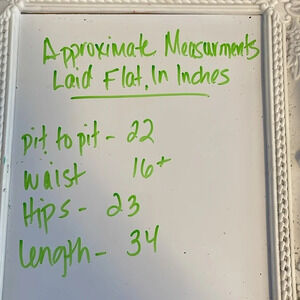 Approximate Measurments
Laid Flat, In Inches
pit to pit - 22
waist 16+
Hips - 23
Length - 34